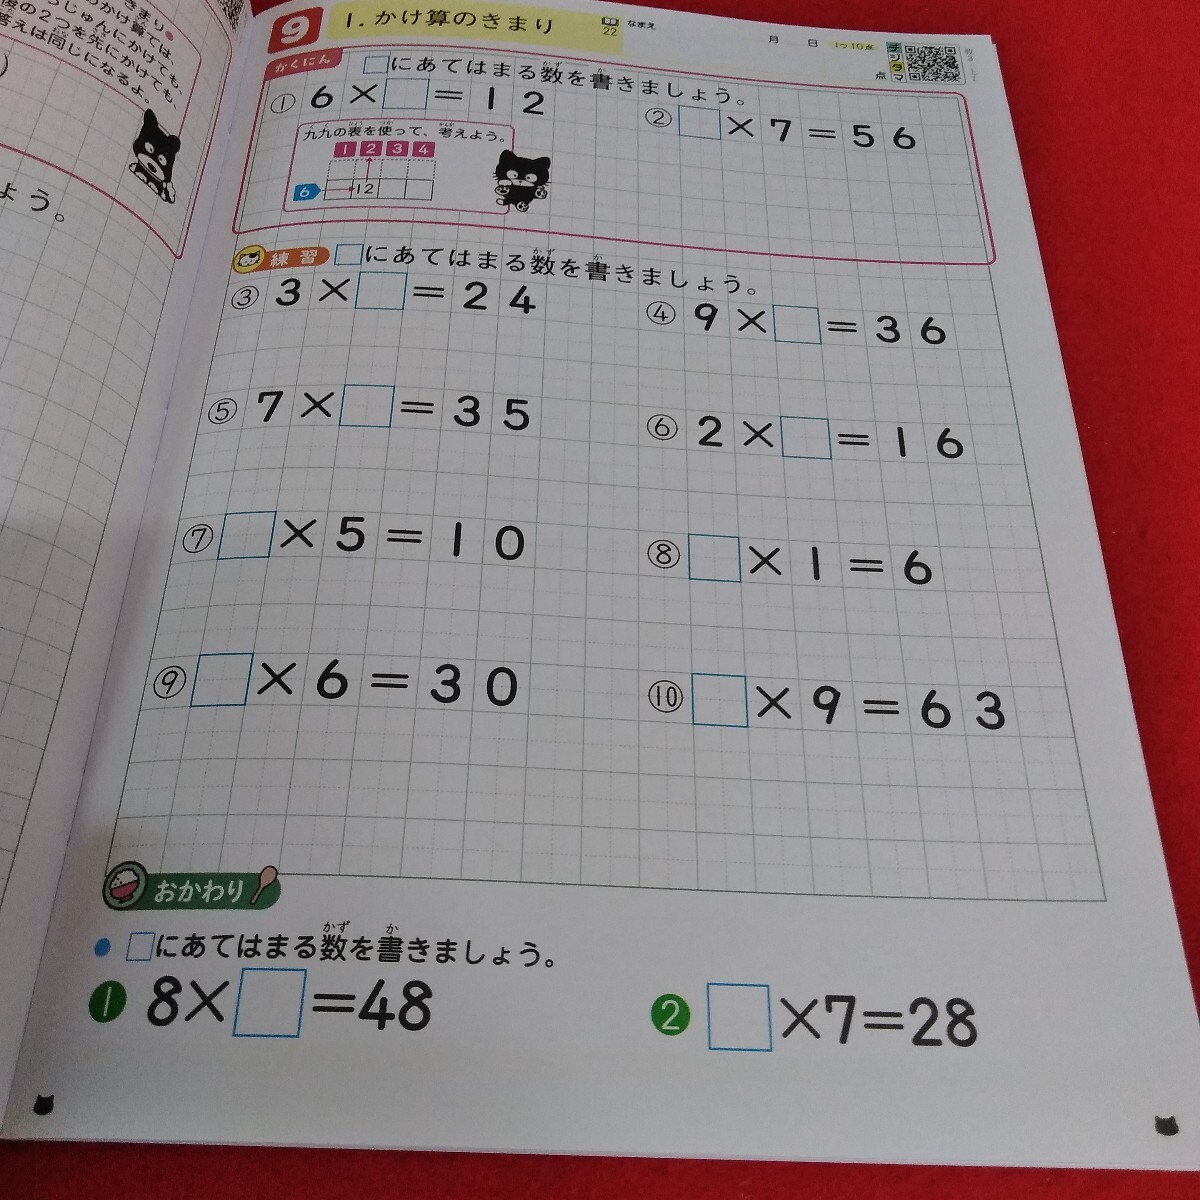 きまり●
のかけ算では、
じゅんにかけても、
後の2つを先にかけても、
答えは同じになるよ。
ょう。
9
1. かけ算のきまり
22
なまえ
月 日
1つ10点
点
デジタマ
かくにん
□にあてはまる数を書きましょう。
① 6×□=12
② □×7=56
九九の表を使って、考えよう。
1 2 3 4
6 12
練習 □にあてはまる数を書きましょう。
③ 3×□=24
④ 9×□=36
⑤ 7×□=35
⑥ 2×□=16
⑦ □×5=10
⑧ □×1=6
⑨ □×6=30
⑩ □×9=63
おかわり
● □にあてはまる数を書きましょう。
1 8×□=48
2 □×7=28